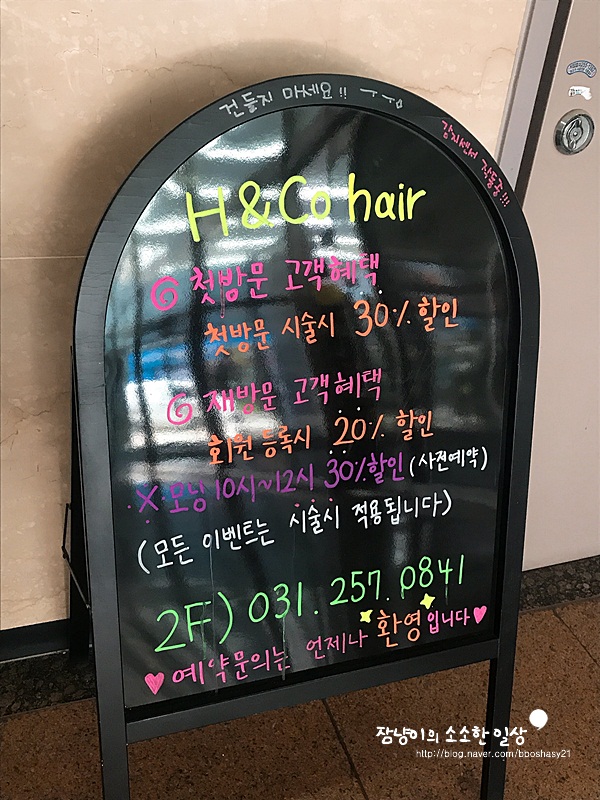 건들지 마세요!! ㅜㅜ
감지센서 작동중!!!
H&Co hair
첫방문 고객혜택
첫방문 시술시 30% 할인
재방문 고객혜택
회원 등록시 20% 할인
※ 모닝 10시~12시 30%할인 (사전예약)
(모든 이벤트는 시술시 적용됩니다)
2F) 031. 257. 0841
♥예약문의는 언제나 환영입니다♥
잠냥이의 소소한 일상
http://blog.naver.com/bboshasy21